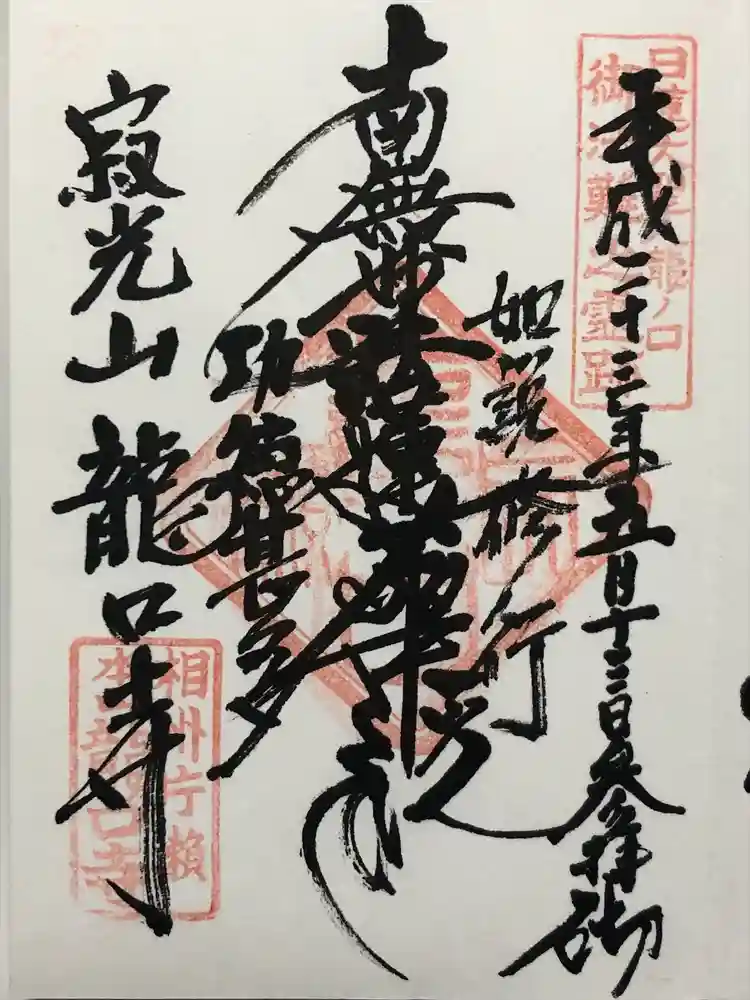 日蓮大聖人龍ノ口
御法難之霊跡
平成二十三年五月十三日参拝御
如説修行
南無妙法蓮華経
功徳甚多
寂光山龍口寺
相州片瀬
本龍口寺